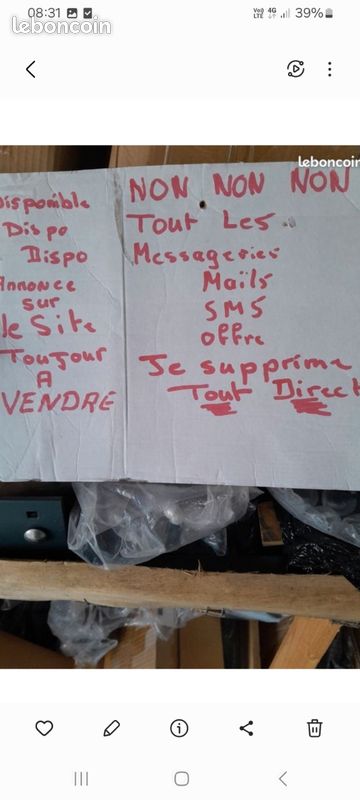 08:31
39%
leboncoin
leboncoin
Disponible
Dispo
Dispo
Annonce
sur
le Site
Toujour
A
VENDRE
NON NON NON
Tout Les
Messageries
Mails
SMS
offre
Je supprime
Tout Direct